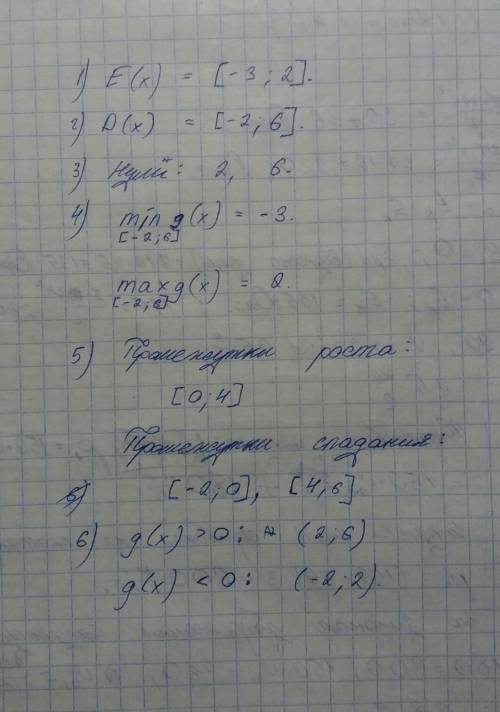 1) E(x) = [-3; 2].
2) D(x) = [-2; 6].
3) Нулі: 2, 6.
4) min g(x) = -3.
[-2; 6]
max g(x) = 2.
[-2; 6]
5) Промежутки роста:
[0; 4]
Промежутки спадания:
[-2; 0], [4; 6]
6) g(x) > 0: (2; 6)
g(x) < 0: (-2; 2).